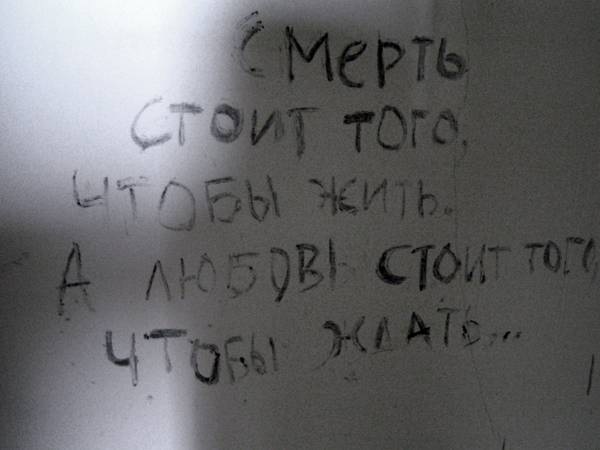 Смерть
стоит того,
чтобы жить.
А любовь стоит того,
чтобы ждать...